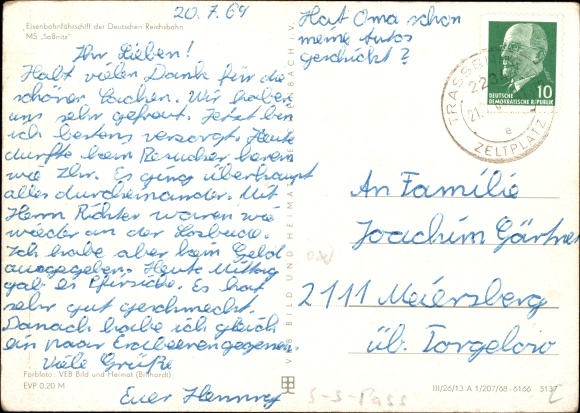 20.7.69
Eisenbahnfährschiff der Deutschen Reichsbahn
MS „Saßnitz"
Ihr Lieben!
Habt vielen Dank für die
schönen Sachen. Wir haben
uns sehr gefreut. Jetzt bin
ich bestens versorgt. Heute
durfte kein Besucher herein
wie Ihr. Es ging überhaupt
alles durcheinander. Mit
Herrn Richter waren wir
wieder an der Losbude.
Ich habe aber kein Geld
ausgegeben. Heute Mittag
gab es Pfirsiche. Es hat
sehr gut geschmeckt.
Danach habe ich gleich
ein paar Erdbeeren gegessen.
Viele Grüße
Euer Henning
Farbfoto: VEB Bild und Heimat (Billhardt)
EVP 0.20 M
Hat Oma schon
meine Autos
geschickt?
VEB BILD UND HEIMAT REICHENBACH I.V.
DEUTSCHE
DEMOKRATISCHE REPUBLIK
10
ZELTPLATZ
e
An Familie
Joachim Gärtner
2111 Meiersberg
üb. Torgelow
III/26/13 A 1/207/68-6166 5137
S-S-Pass